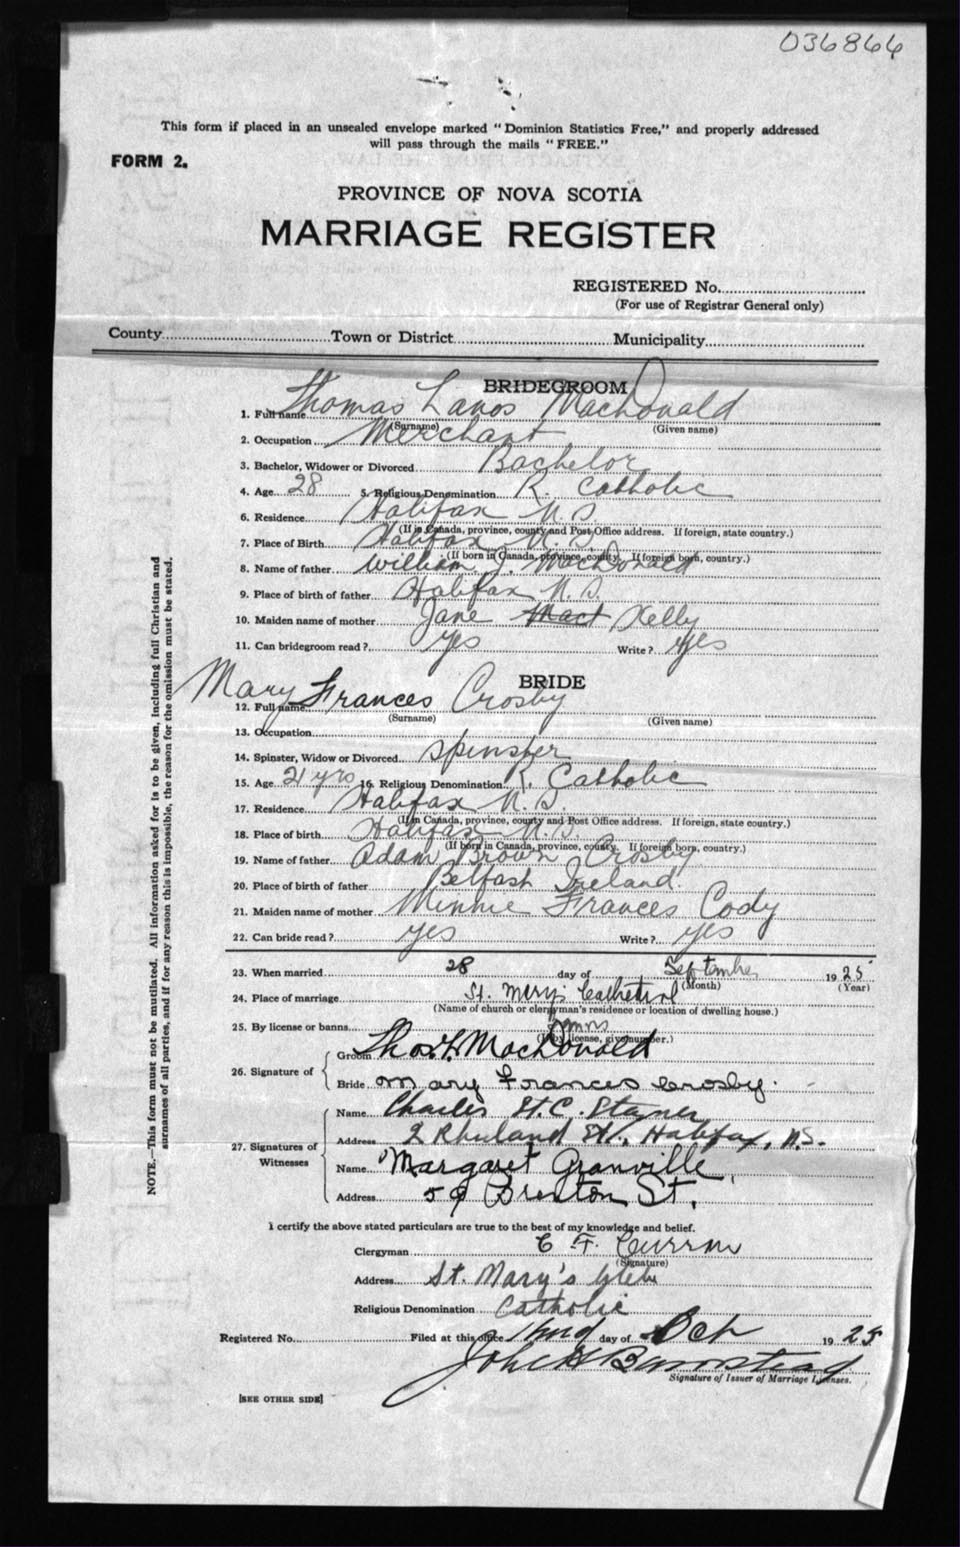 036866
This form if placed in an unsealed envelope marked "Dominion Statistics Free," and properly addressed
will pass through the mails "FREE."
FORM 2.
PROVINCE OF NOVA SCOTIA
MARRIAGE REGISTER
REGISTERED No.
(For use of Registrar General only)
County Town or District Municipality
BRIDEGROOM
1. Full name Thomas Lanos MacDonald
(Surname) (Given name)
2. Occupation Merchant
3. Bachelor, Widower or Divorced Bachelor
4. Age 28 5. Religious Denomination R. Catholic
6. Residence Halifax N.S.
(If in Canada, province, county and Post Office address. If foreign, state country.)
7. Place of Birth Halifax N.S.
(If born in Canada, province, county. If foreign born, country.)
8. Name of father William J. MacDonald
9. Place of birth of father Halifax N.S.
10. Maiden name of mother Jane Mact Kelly
11. Can bridegroom read? yes Write? Yes
BRIDE
12. Full name Mary Frances Crosby
(Surname) (Given name)
13. Occupation
14. Spinster, Widow or Divorced Spinster
15. Age 21 yrs 16. Religious Denomination R. Catholic
17. Residence Halifax N.S.
(If in Canada, province, county and Post Office address. If foreign, state country.)
18. Place of birth Halifax N.S.
(If born in Canada, province, county. If foreign born, country.)
19. Name of father Adam Brown Crosby
20. Place of birth of father Belfast Ireland.
21. Maiden name of mother Minnie Frances Cody
22. Can bride read? yes Write? yes
23. When married 28 day of September 1925
(Month) (Year)
24. Place of marriage St. Mary's Cathedral
(Name of church or clergyman's residence or location of dwelling house.)
25. By license or banns banns
(If by license, give number.)
26. Signature of
Groom Thos. L. MacDonald
Bride Mary Frances Crosby.
27. Signatures of Witnesses
Name Charles St. C. Stayner
Address 2 Rhuland St., Halifax, N.S.
Name Margaret Granville
Address 59 Brenton St.
I certify the above stated particulars are true to the best of my knowledge and belief.
Clergyman C F. Curran
(Signature)
Address St. Mary's Glebe
Religious Denomination Catholic
Registered No. Filed at this office day of Oct 1925
John H Barnstead
Signature of Issuer of Marriage Licenses.
[SEE OTHER SIDE]
NOTE.—This form must not be mutilated. All information asked for is to be given, including full Christian and
surnames of all parties, and if for any reason this is impossible, the reason for the omission must be stated.